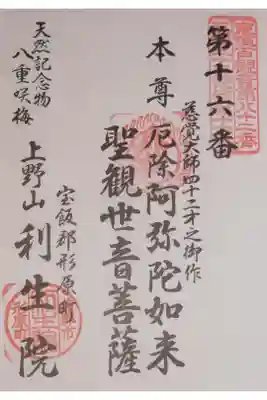 第十六番
慈覚大師四十二才之御作
本尊 厄除阿弥陀如来
聖観世音菩薩
宝飯郡形原町
上野山 利生院
天然記念物
八重咲梅